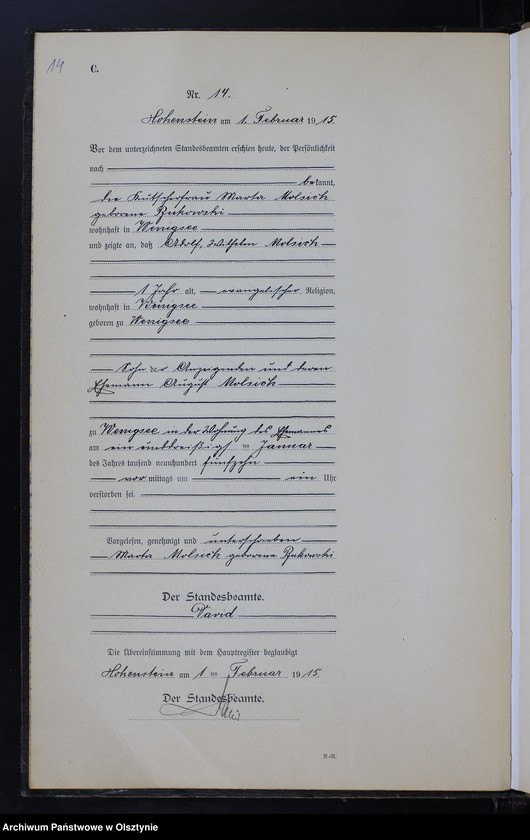 14
C.
Nr. 14.
Hohenstein am 1. Februar 1915.
Vor dem unterzeichneten Standesbeamten erschien heute, der Persönlichkeit
nach
bekannt,
die Kutscherfrau Marta Molsich
geborene Bukowski
wohnhaft in Wenigsee
und zeigte an, daß Adolf, Wilhelm Molsich
1 Jahr alt, evangelischer Religion,
wohnhaft in Wenigsee
geboren zu Wenigsee
Sohn der Anzeigenden und deren
Ehemann August Molsich
zu Wenigsee in der Wohnung des Ehemannes
am einunddreißigsten Januar
des Jahres tausend neunhundert fünfzehn
vormittags um ein Uhr
verstorben sei.
Vorgelesen, genehmigt und unterschrieben
Marta Molsich geborene Bukowski
Der Standesbeamte.
David
Die Übereinstimmung mit dem Hauptregister beglaubigt
Hohenstein am 1 ten Februar 1915.
Der Standesbeamte.
Archiwum Państwowe w Olsztynie